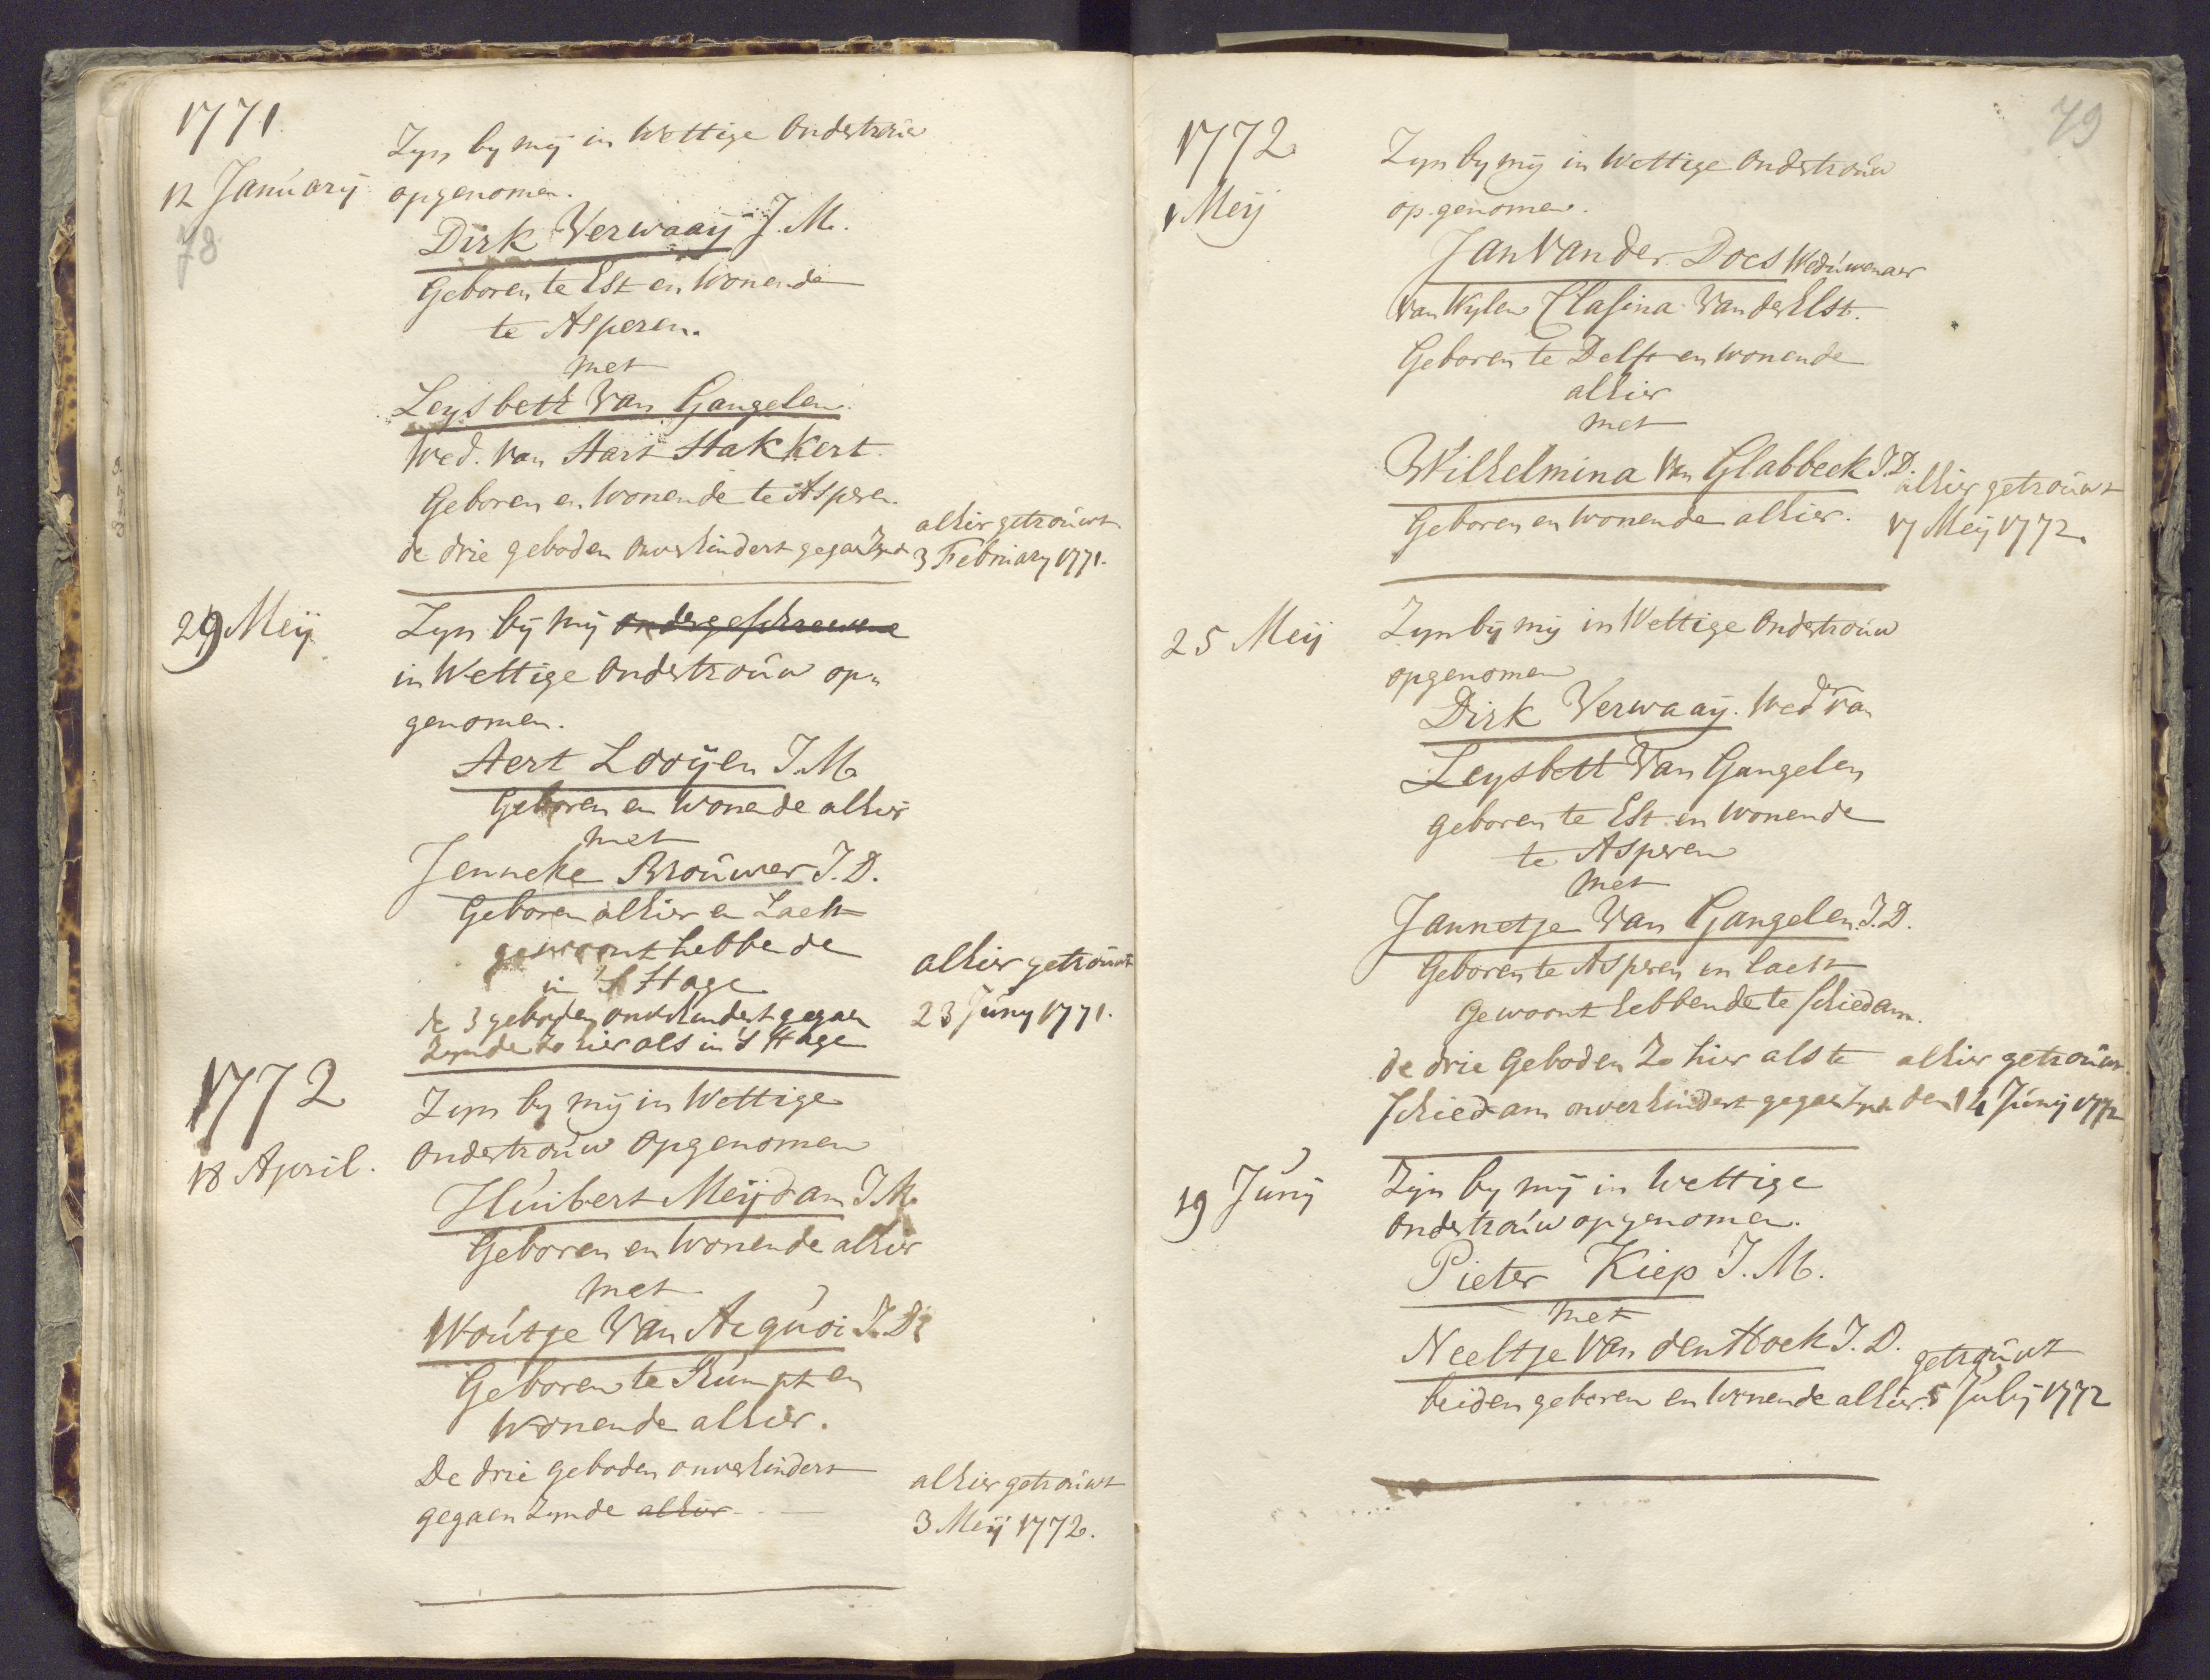 1771
12 January
78
Zyn by mij in Wettige Ondertrouw
opgenomen.
Dirk Verwaaij J. M.
Geboren te Est en Wonende
te Asperen.
met
Leysbett Van Gangelen
Wed. Van Aart Hakkert
Geboren en Wonende te Asperen.
de drie geboden onverhindert gegaen zynde
alhier getrouwt
3 February 1771.
29 Meij
Zyn bij mij ondergeschreevene
in Wettige Ondertrouw op„
genomen.
Aert Looijen J. M.
Geboren en Wonende alhier
met
Jenneke Brouwer J. D.
Geboren alhier en Laetst
gewoont hebbende
in 's Hage
de 3 geboden onverhindert gegaen
zynde zo hier als in 's Hage
alhier getrouwt
23 Juny 1771.
1772
18 April.
Zyn by mij in Wettige
Ondertrouw Opgenomen
Huibert Meijdam J. M.
Geboren en Wonende alhier
met
Woutje Van Acquoi J. D.
Geboren te Rumpt en
Wonende alhier.
De drie geboden onverhindert
gegaen zynde alhier
alhier getrouwt
3 Meij 1772.
79
1772
1 Meij
Zyn by mij in Wettige Ondertrouw
opgenomen.
Jan Van der Does Weduwenaer
Van Wylen Clasina Van der Elst.
Geboren te Delft en wonende
alhier
met
Wilhelmina Van Glabbeek J. D.
Geboren en wonende alhier.
alhier getrouwt
17 Meij 1772.
25 Meij
Zyn bij mij in Wettige Ondertrouw
opgenomen
Dirk Verwaaij. Wedr van
Leysbett Van Gangelen
geboren te Est en wonende
te Asperen
met
Jannetje Van Gangelen J. D.
Geboren te Asperen en laetst
Gewoont hebbende te Schiedam.
de drie Geboden zo hier als te
Schiedam onverhindert gegaen zynde
alhier getrouwt
den 14 Junij 1772
19 Junij
Zijn by mij in Wettige
Ondertrouw opgenomen.
Pieter Kiep J. M.
met
Neeltje Van den Hoek J. D.
beiden geboren en Wonende alhier.
getrouwt
5 Julij 1772